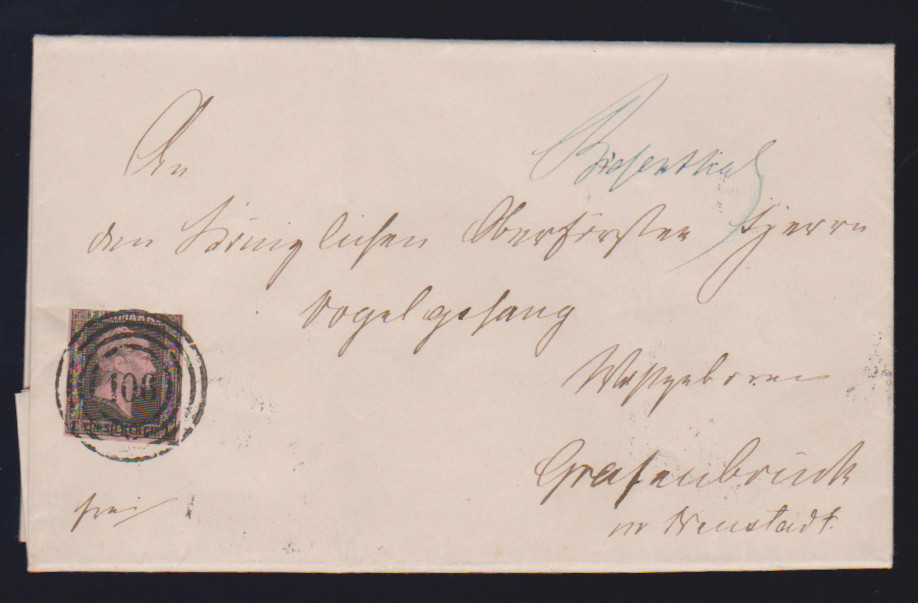 An
Biesenthal
den Königlichen Oberförster Herrn
Vogelgesang
Wohlgeboren
Grafenbrück
Neustadt.
frei
108
1 SILBERGR.